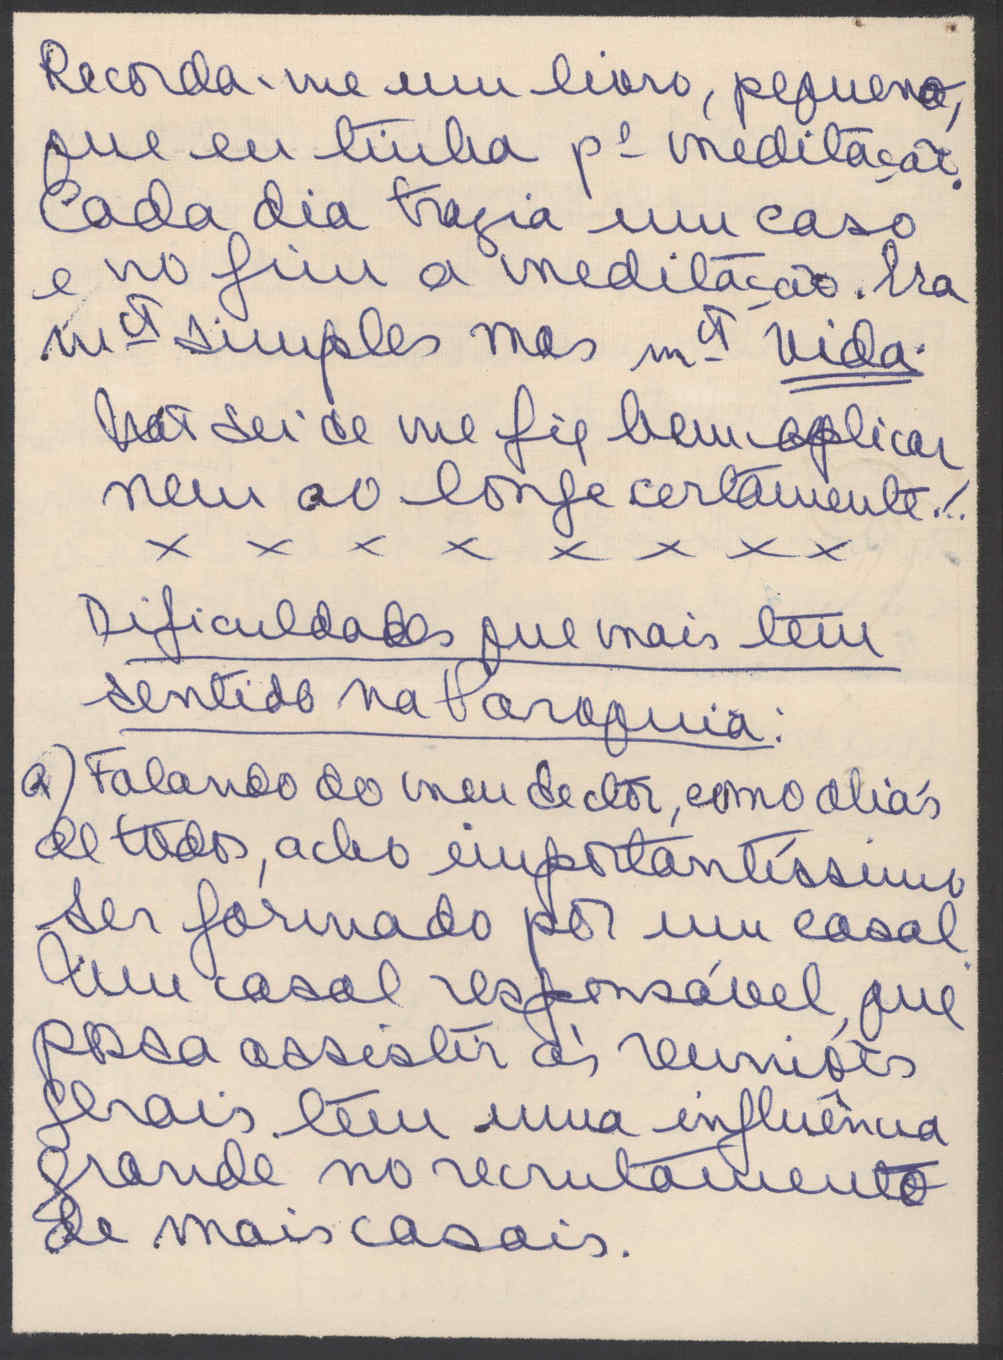 Recorda-me um livro, pequeno,
que eu tinha pª meditação.
Cada dia trazia um caso
e no fim a meditação. Era
mᵗº simples mas mᵗª vida.
Não sei se me fiz bem explicar
nem ao longe certamente!..
x x x x x x x x
Dificuldades que mais tem
sentido na Paroquia:
a) Falando do meu Sector, como aliás
de todos, acho importantíssimo
ser formado por um casal.
Um casal responsável, que
possa assistir às reuniões
gerais tem uma influência
grande no recrutamento
de mais casais.